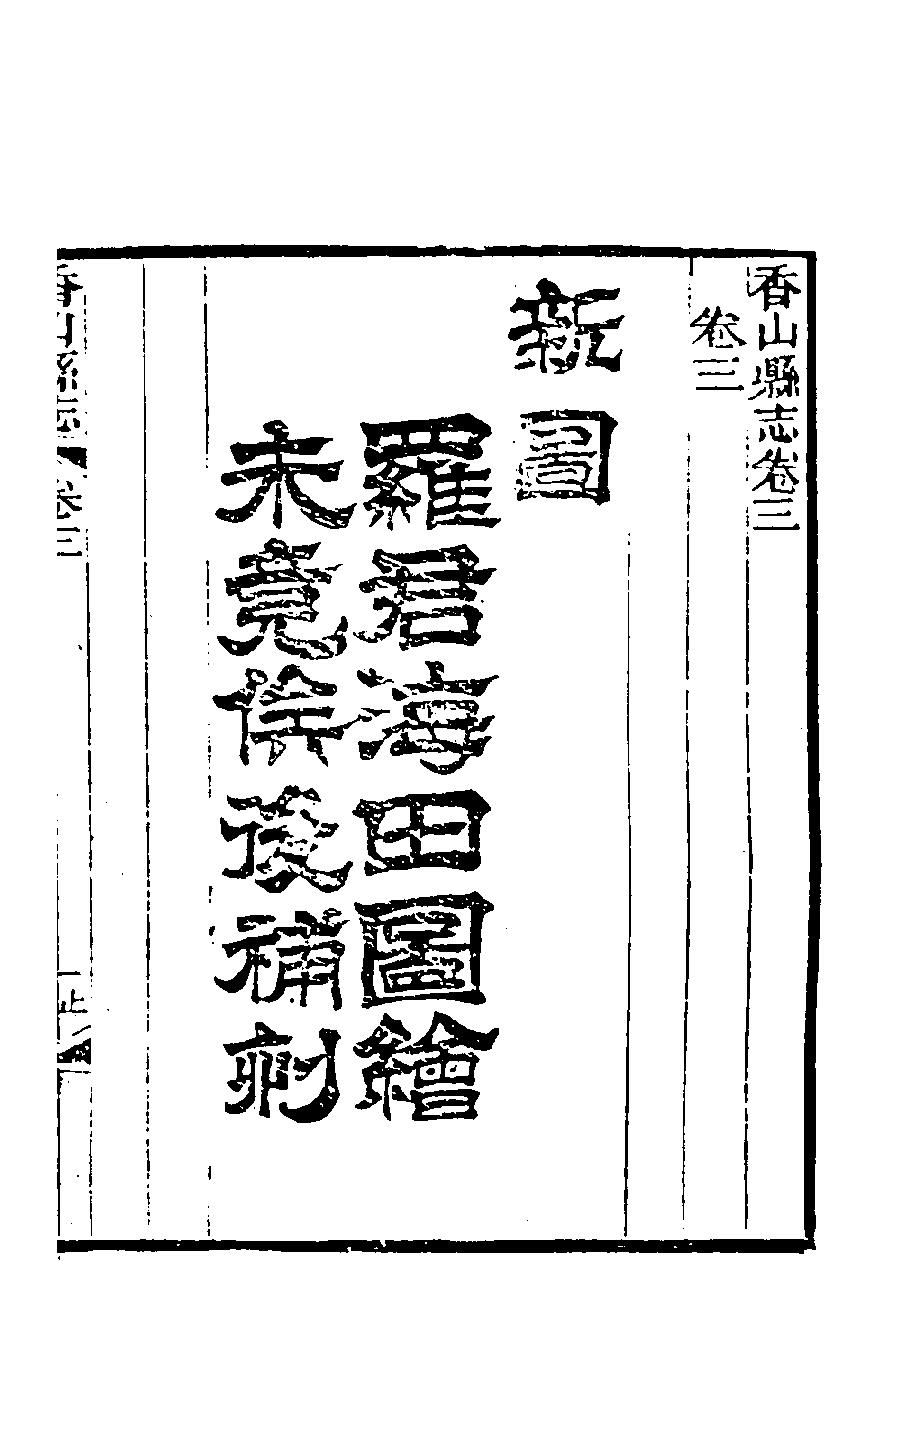 香山縣志卷三
卷三
新圖
羅君海田圖繪
未竟俟後補刻
香山縣志 卷三 一 止